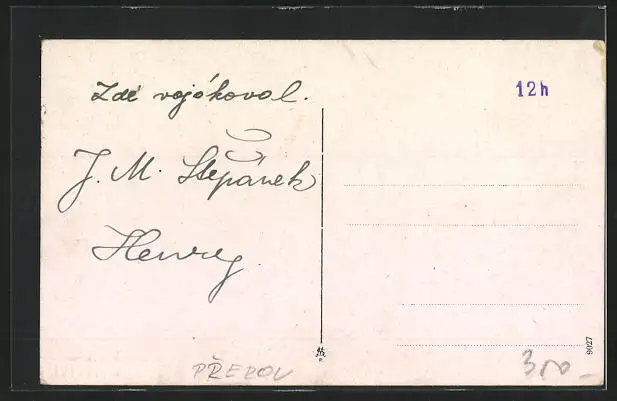 Zde vojákoval.
12h
J. M. Štěpánek
Henry
PŘEROV
300 –
9027